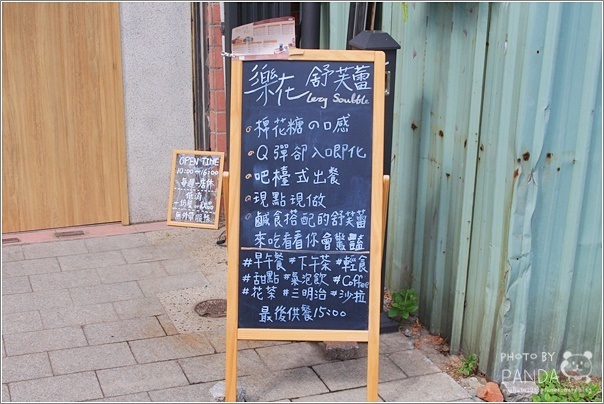 樂在 舒芙蕾
Lazy Souffle
棉花糖の口感
Q彈卻入口即化
吧檯式出餐
現點現做
鹹食搭配的舒芙蕾
來吃看看你會驚豔
#早午餐 #下午茶 #輕食
#甜點 #氣泡飲 #Coffee
#花茶 #三明治 #沙拉
最後供餐15:00
OPEN TIME
10:00~16:00
每週一店休
無外帶服務
PHOTO BY
PANDA